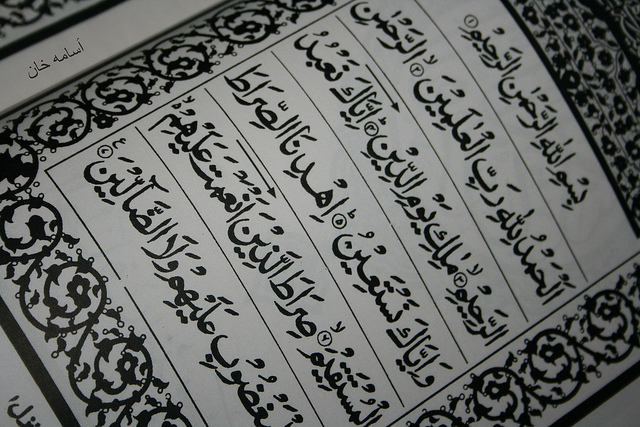 أسامه خان
بِسْمِ اللهِ الرَّحْمٰنِ الرَّحِيْمِ ①
اَلْحَمْدُ لِلّٰهِ رَبِّ الْعٰلَمِيْنَ ② الرَّحْمٰنِ
الرَّحِيْمِ ③ مٰلِكِ يَوْمِ الدِّيْنِ ④ اِيَّاكَ نَعْبُدُ
وَاِيَّاكَ نَسْتَعِيْنُ ⑤ اِهْدِنَا الصِّرَاطَ
الْمُسْتَقِيْمَ ⑥ صِرَاطَ الَّذِيْنَ اَنْعَمْتَ عَلَيْهِمْ
مَغْضُوْبِ عَلَيْهِمْ وَلَا الضَّآلِّيْنَ ⑦